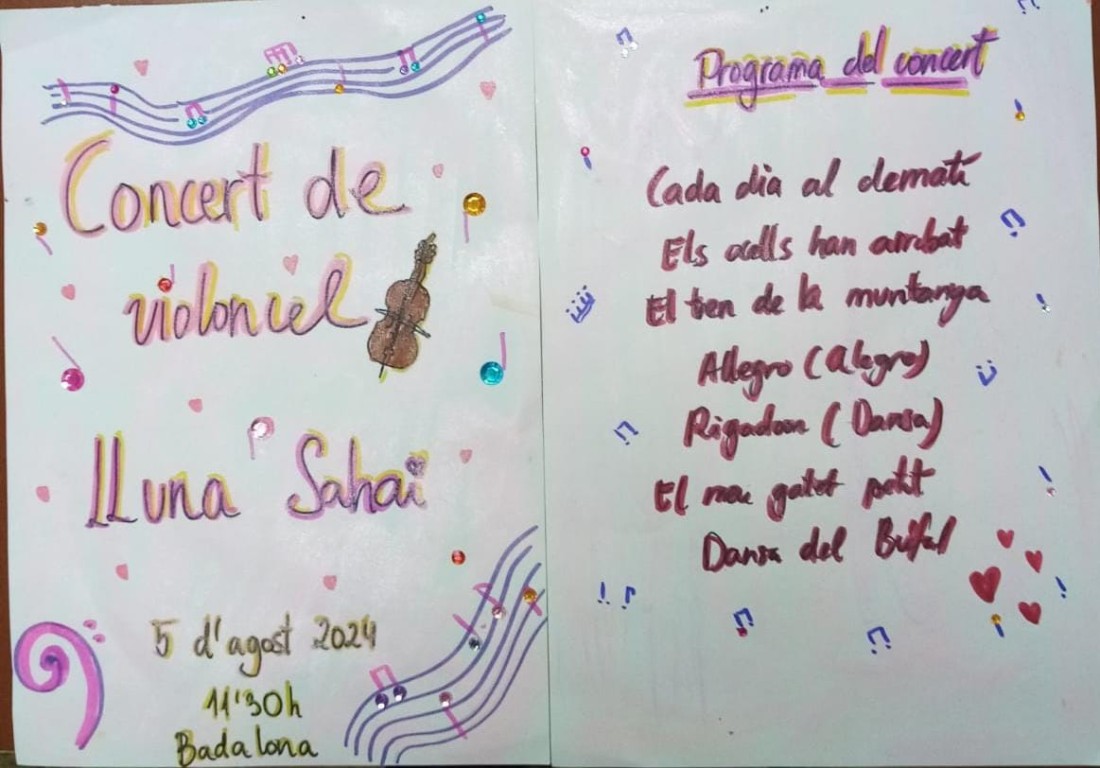 Concert de
violoncel
LLuna Sahaï
5 d'agost 2024
11'30h
Badalona
Programa del concert
Cada dia al dematí
Els ocells han arribat
El tren de la muntanya
Allegro (Alegre)
Rigadoon (Dansa)
El meu gatet petit
Dansa del Búfal